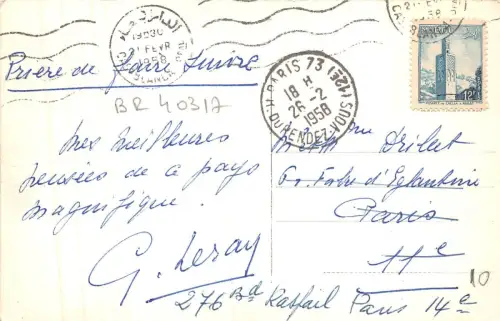 الدار البيضاء
19H30
21 FEVR
1958
CASABLANCA
21 FEVR
Prière de faire suivre
BR 40317
PARIS 73 (12E)
18 H
26-2
1958
R. DU RENDEZ-VOUS
12F
Mes meilleures
pensées de ce pays
magnifique.
G. Leray
Mme Drilut
60. Fabre d'Eglantine
Paris
11e
276 Bd Raspail Paris 14e
10